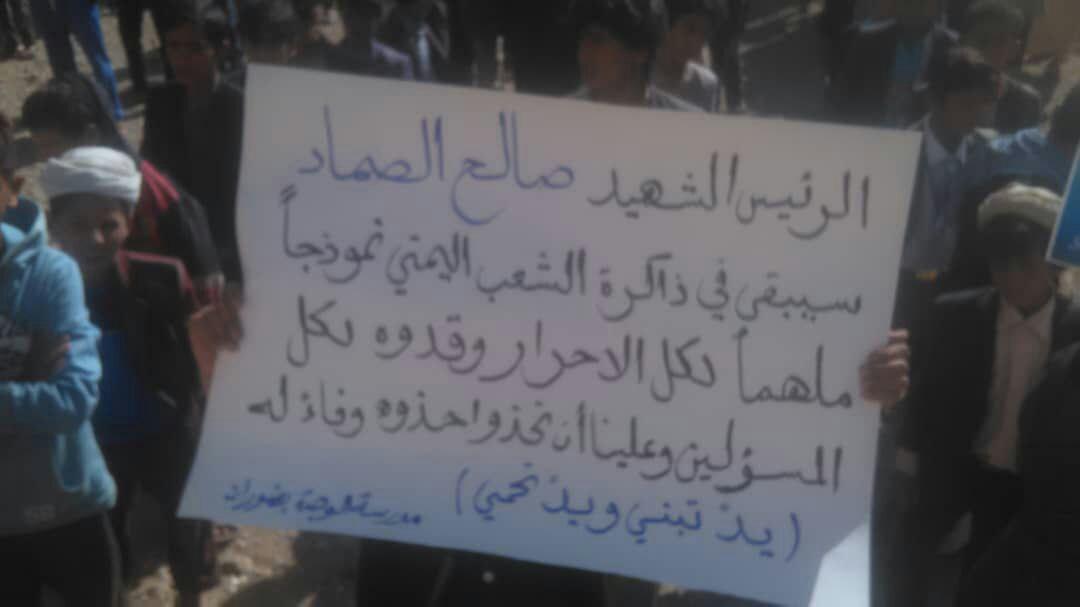 الرئيس الشهيد صالح الصماد
سيبقى في ذاكرة الشعب اليمني نموذجاً
ملهماً لكل الاحرار وقدوه لكل
المسؤلين وعلينا أن نحذوا حذوه وفاءً له
(يدٌ تبني ويدٌ تحمي) مدرسة الوحدة